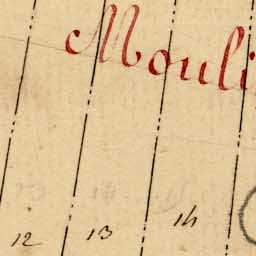 Mouli
12 13 14